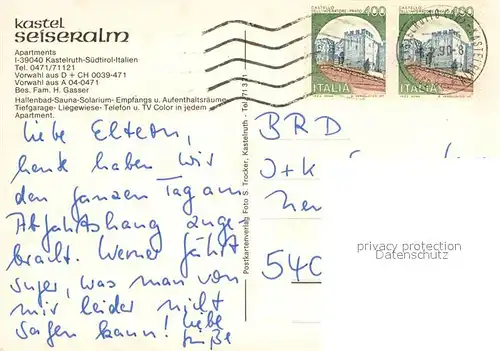 kastel
seiseralm
Apartments
I-39040 Kastelruth-Südtirol-Italien
Tel. 0471/71121
Vorwahl aus D + CH 0039-471
Vorwahl aus A 04-0471
Bes. Fam. H. Gasser
Hallenbad-Sauna-Solarium- Empfangs u. Aufenthaltsräume
Tiefgarage- Liegewiese- Telefon u. TV Color in jedem
Apartment.
Liebe Eltern,
heute haben wir
den ganzen Tag am
Abfahrtshang zuge-
bracht. Werner fährt
super, was man von
mir leider nicht
sagen kann! Liebe
Grüße
Postkartenverlag Foto S. Trocker, Kastelruth - Tel. 71371
400
ITALIA
ITALIA
90-8
BRD
J+K
540
privacy protection
Datenschutz